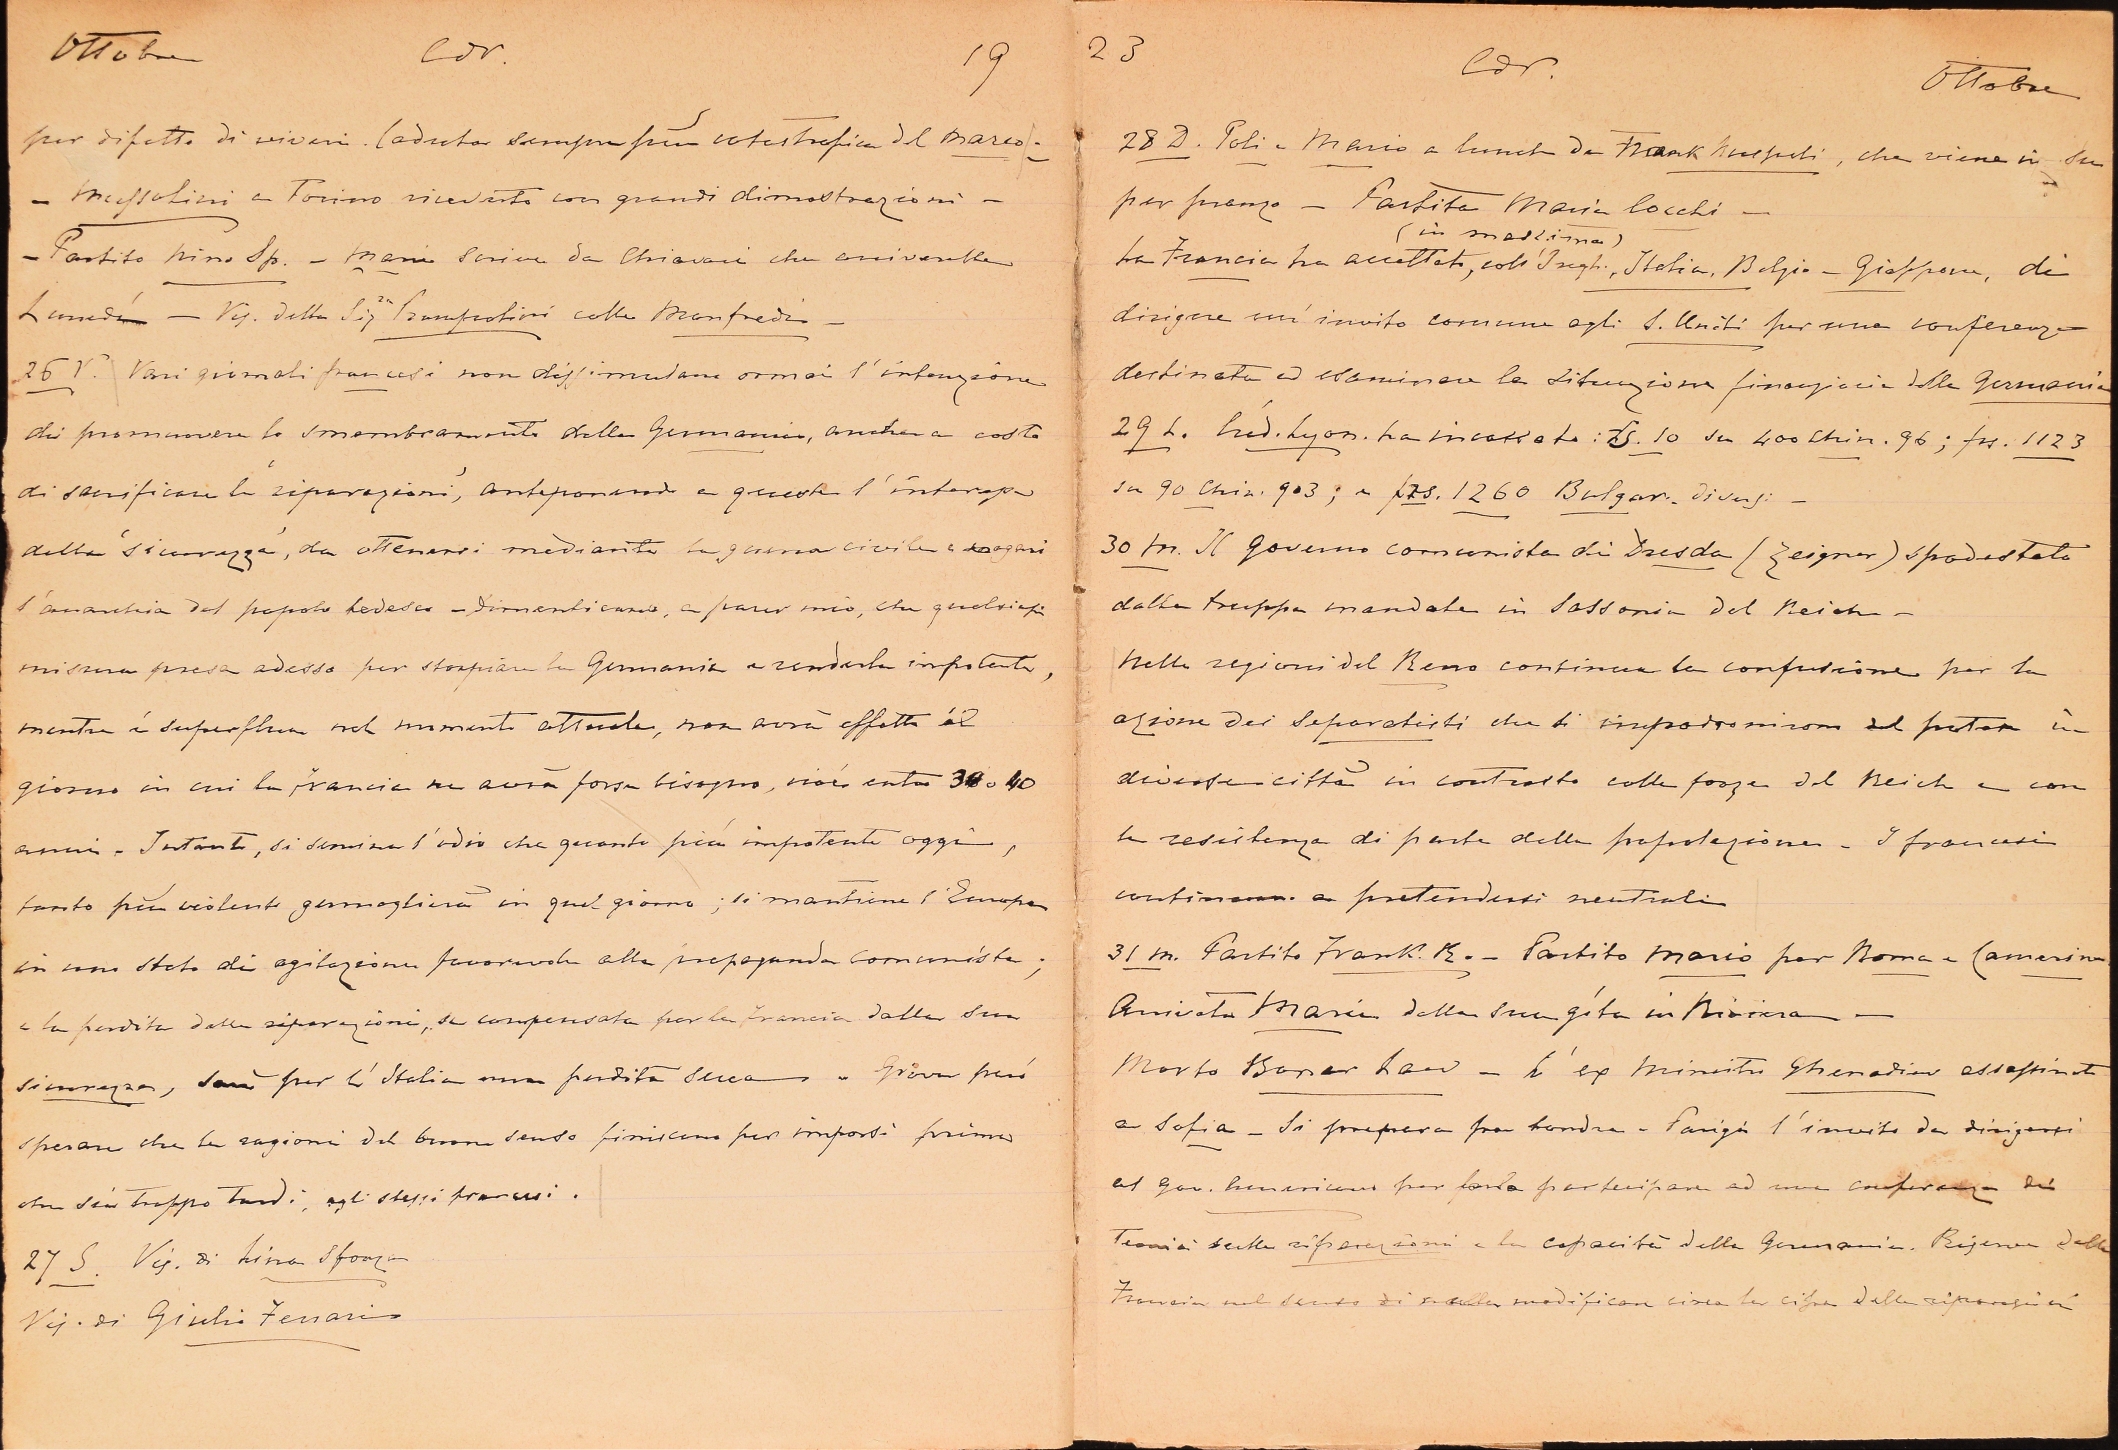 Ottobre Cdr. 19
per difetto di viveri. Caduta sempre più catastrofica del marco.
- Mussolini a Torino ricevuto con grandi dimostrazioni -
- Partito Nino Sp. - Maria scrive da Chiavari che arriverebbe
Lunedì - Vis. della Sig.ra Prampolini colla Manfredi -
26 V. Vari giornali francesi non dissimulano ormai l'intenzione
di promuovere lo smembramento della Germania, anche a costo
di sacrificare le "riparazioni", anteponendo a queste l'interesse
della "sicurezza", da ottenersi mediante la guerra civile e magari
l'anarchia del popolo tedesco - Dimenticano, a parer mio, che qualsiasi
misura presa adesso per storpiare la Germania e renderla impotente,
mentre è superflua nel momento attuale, non avrà effetto il
giorno in cui la Francia ne avrà forse bisogno, cioè entro 30 o 40
anni - Intanto, si semina l'odio che quanto più impotente oggi,
tanto più violento germoglierà in quel giorno; si mantiene l'Europa
in uno stato di agitazione favorevole alla propaganda comunista;
e la perdita delle riparazioni, se compensata per la Francia dalla sua
sicurezza, sarà per l'Italia una perdita secca - Giova però
sperare che le ragioni del buon senso finiscano per imporsi prima
che sia troppo tardi, agli stessi francesi.
27 S. Vis. di Lina Sforza
Vis. di Giulio Ferrari
23 Cdr. Ottobre
28 D. Poli e Mario a lunch da Frank Ruspoli, che viene in su
per pranzo - Partita Maria Cocchi -
(in massima)
La Francia ha accettato, coll'Ingh., Italia, Belgio e Giappone, di
dirigere un'invito comune agli S. Uniti per una conferenza
destinata ad esaminare la situazione finanziaria della Germania
29 L. Créd. Lyon. ha incassato: Ls. 10 su 400 Chin. 96; frs. 1123
su 90 Chin. 903; e frs. 1260 Bulgar. diversi -
30 M. Il governo comunista di Dresda (Zeigner) spodestato
dalle truppe mandate in Sassonia del Reich -
Nelle regioni del Reno continua la confusione per la
azione dei Separatisti che si impadroniron del potere in
diverse città in contrasto colle forze del Reich e con
la resistenza di parte della popolazione - I francesi
continuano a pretendersi neutrali
31 M. Partito Frank. R. - Partito Mario per Roma e Camerino
Arrivata Maria dalla sua gita in Riviera -
Morto Bonar Law - L'ex Ministro Ghenadiev assassinato
a Sofia - Si prepara fra Londra e Parigi l'invito da dirigersi
al Gov. Americano per farlo partecipare ad una conferenza di
Tecnici sulle riparazioni e la capacità della Germania. Riserva della
Francia nel senso di nulla modificare circa la cifra delle riparazioni